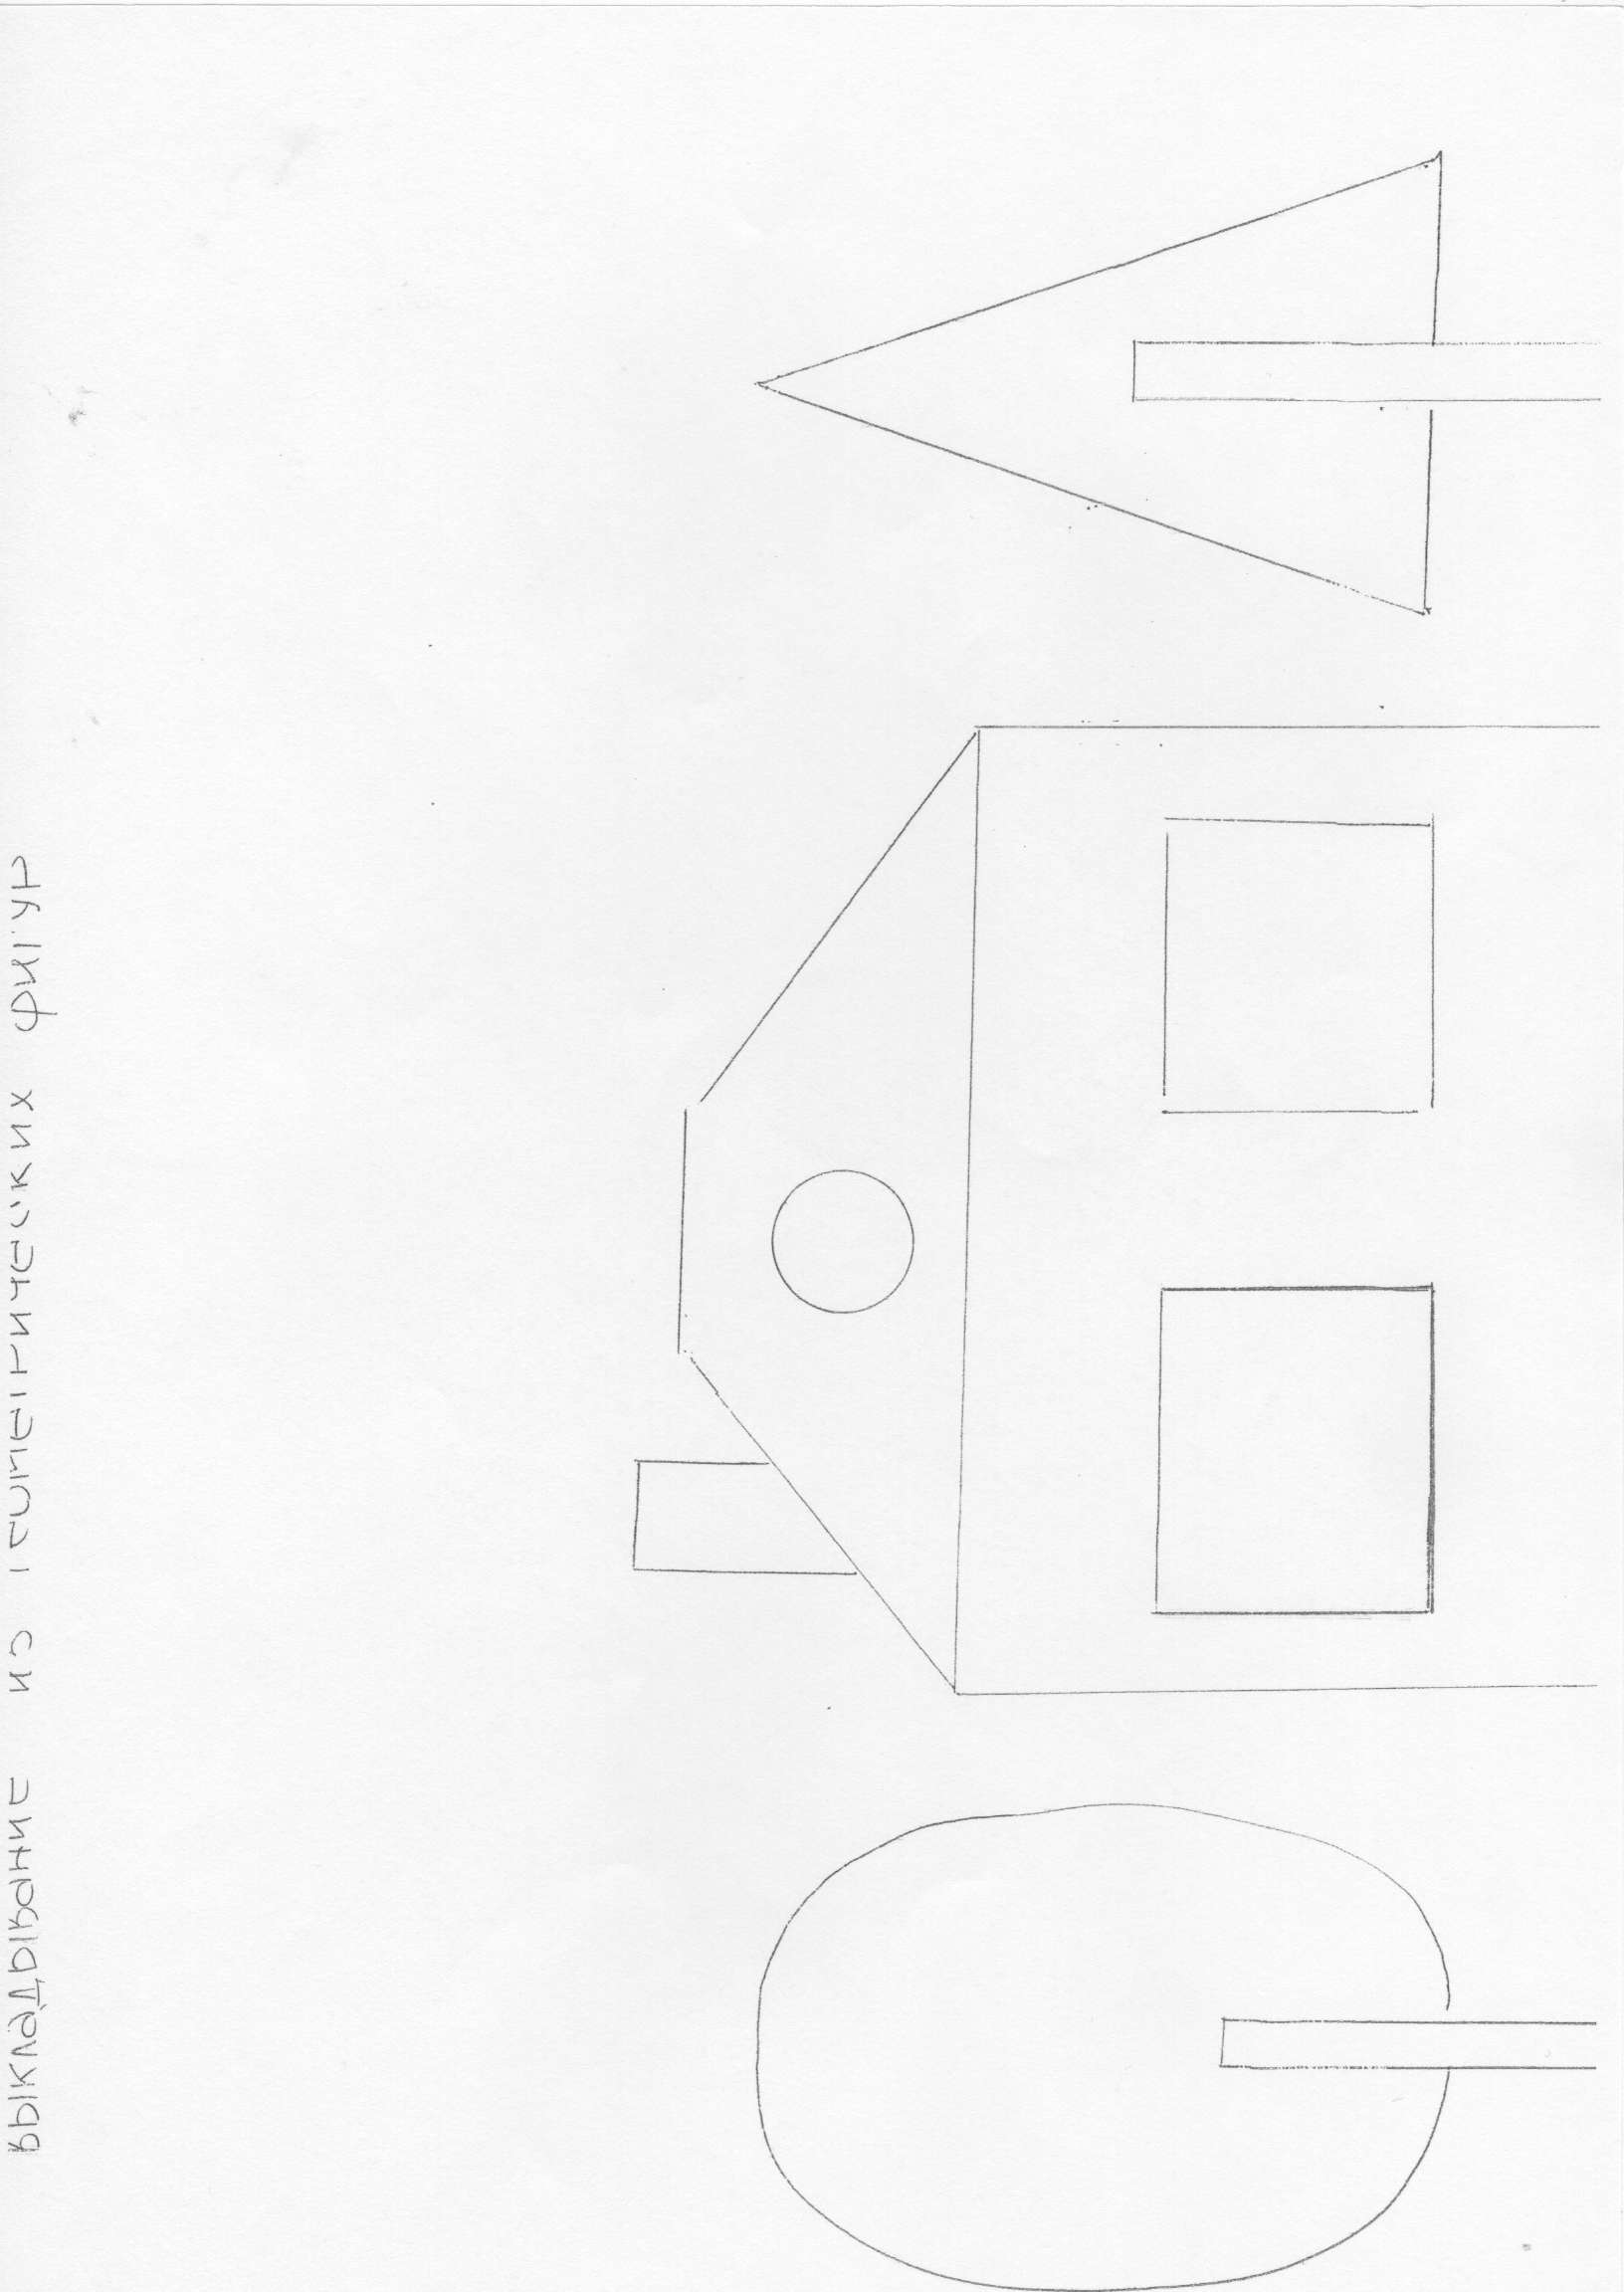 выкладывание из геометрических фигур